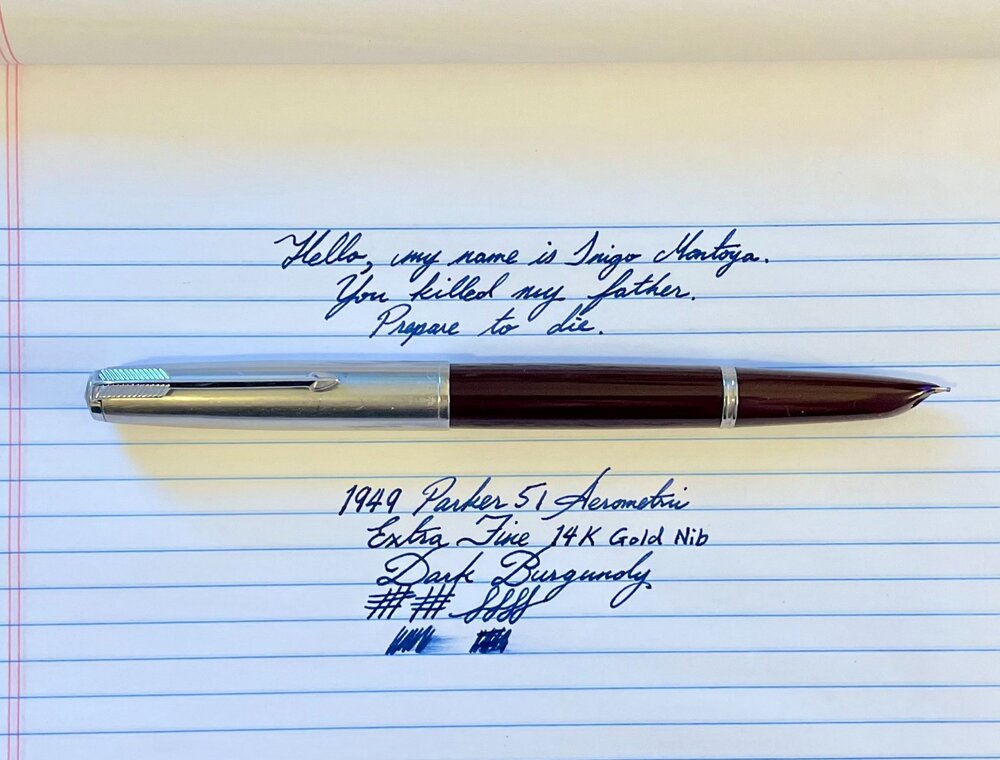 Hello, my name is Inigo Montoya.
You killed my father.
Prepare to die.
1949 Parker 51 Aerometric
Extra Fine 14K Gold Nib
Dark Burgundy